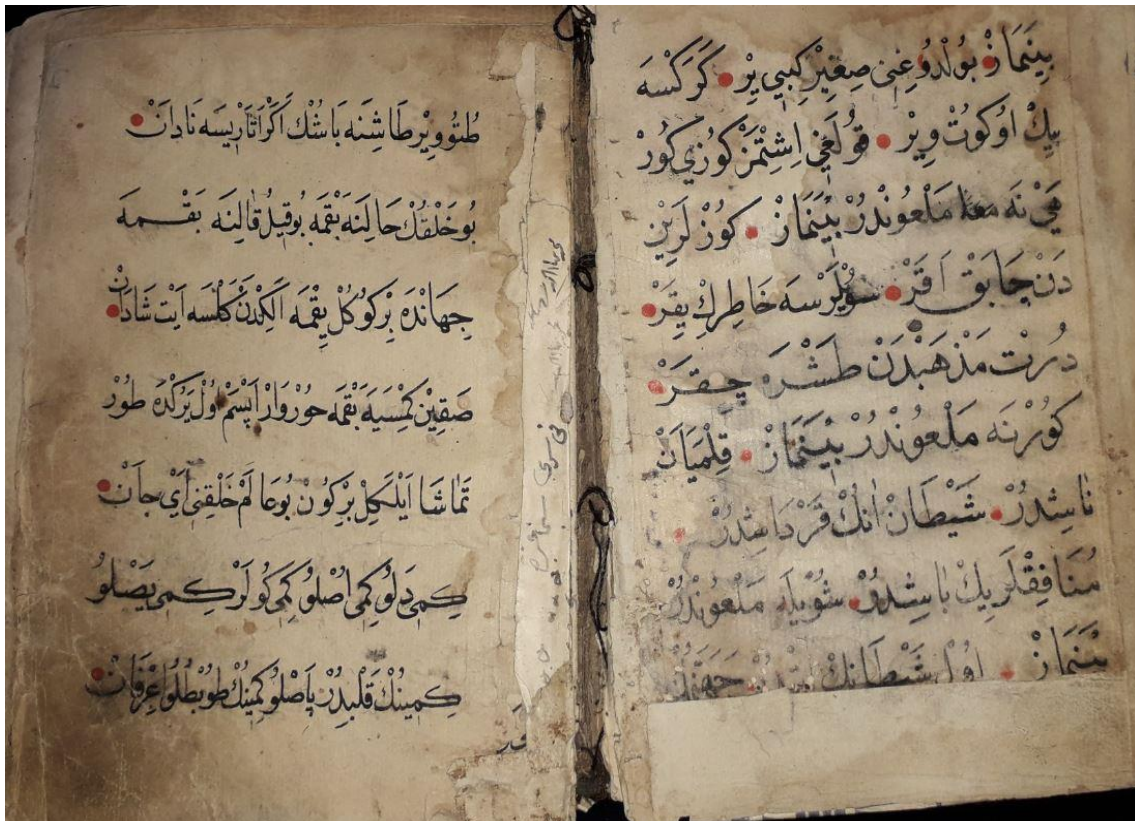 بِينَمَازْ بُولْدُوغِنِي صِغِيرْ كِبِي يِرْ كَرَكْسَه
بِيكْ اوُكُوتْ وِيرْ قُولَغِي اِشِتْمَزْ كوُزِي كوُرْ
هَيْ نَه مَلْعُونْدُرْ بِينَمَازْ كوُزْلَرِيْنِ
دَنْ جَابَقْ اَقَرْ سُويْلَرْسَه خَاطِرِكْ يِقَرْ
دُرْتْ مَذْهَبْدَنْ طَشْرَه چِقَرْ
كوُرْنَه مَلْعُونْدُرْ بِينَمَازْ قِلْمَيَانْ
نَاشِدُرْ شَيْطَانْ اَنُكْ قَرْدَاشِدُرْ
مُنَافِقْلَرِيكْ بَاشِدُرْ شُويْلَه مَلْعُونْدُرْ
بِينَمَازْ اوُلْ شَيْطَانِكْ
طُتُووِيرْ طَاشِنَه بَاشُكْ اَكَرْ اَتَارِيسَه نَادَانْ
بُو خَلْقُكْ حَالِنَه بَقْمَه بُو قِيلُ قَالِنَه بَقْمَه
جِهَانْدَه بِرْ كوُكُلْ يِقْمَه اَلِكْدَنْ كَلُنْسَه اَيتْ شَادَانْ
صَقِينْ كِمْسَيَه بَقْمَه خُورْ وَارْ اَپْسَمْ اوُلْ يَرُكْدَه طوُرْ
تَمَاشَا اَيْلَكِلْ بِرْ كُونْ بُو عَالَمْ خَلْقِنِي اَيْ جَانْ
كِمِي دَلُو كِمِي اُصْلُو كِمِي كُولَرْ كِمِي يَصْلُو
كِمِينُكْ قَلْبِدُرْ پَاصْلُو كِمِينُكْ طُوپْطُلُو عِرْفَانْ